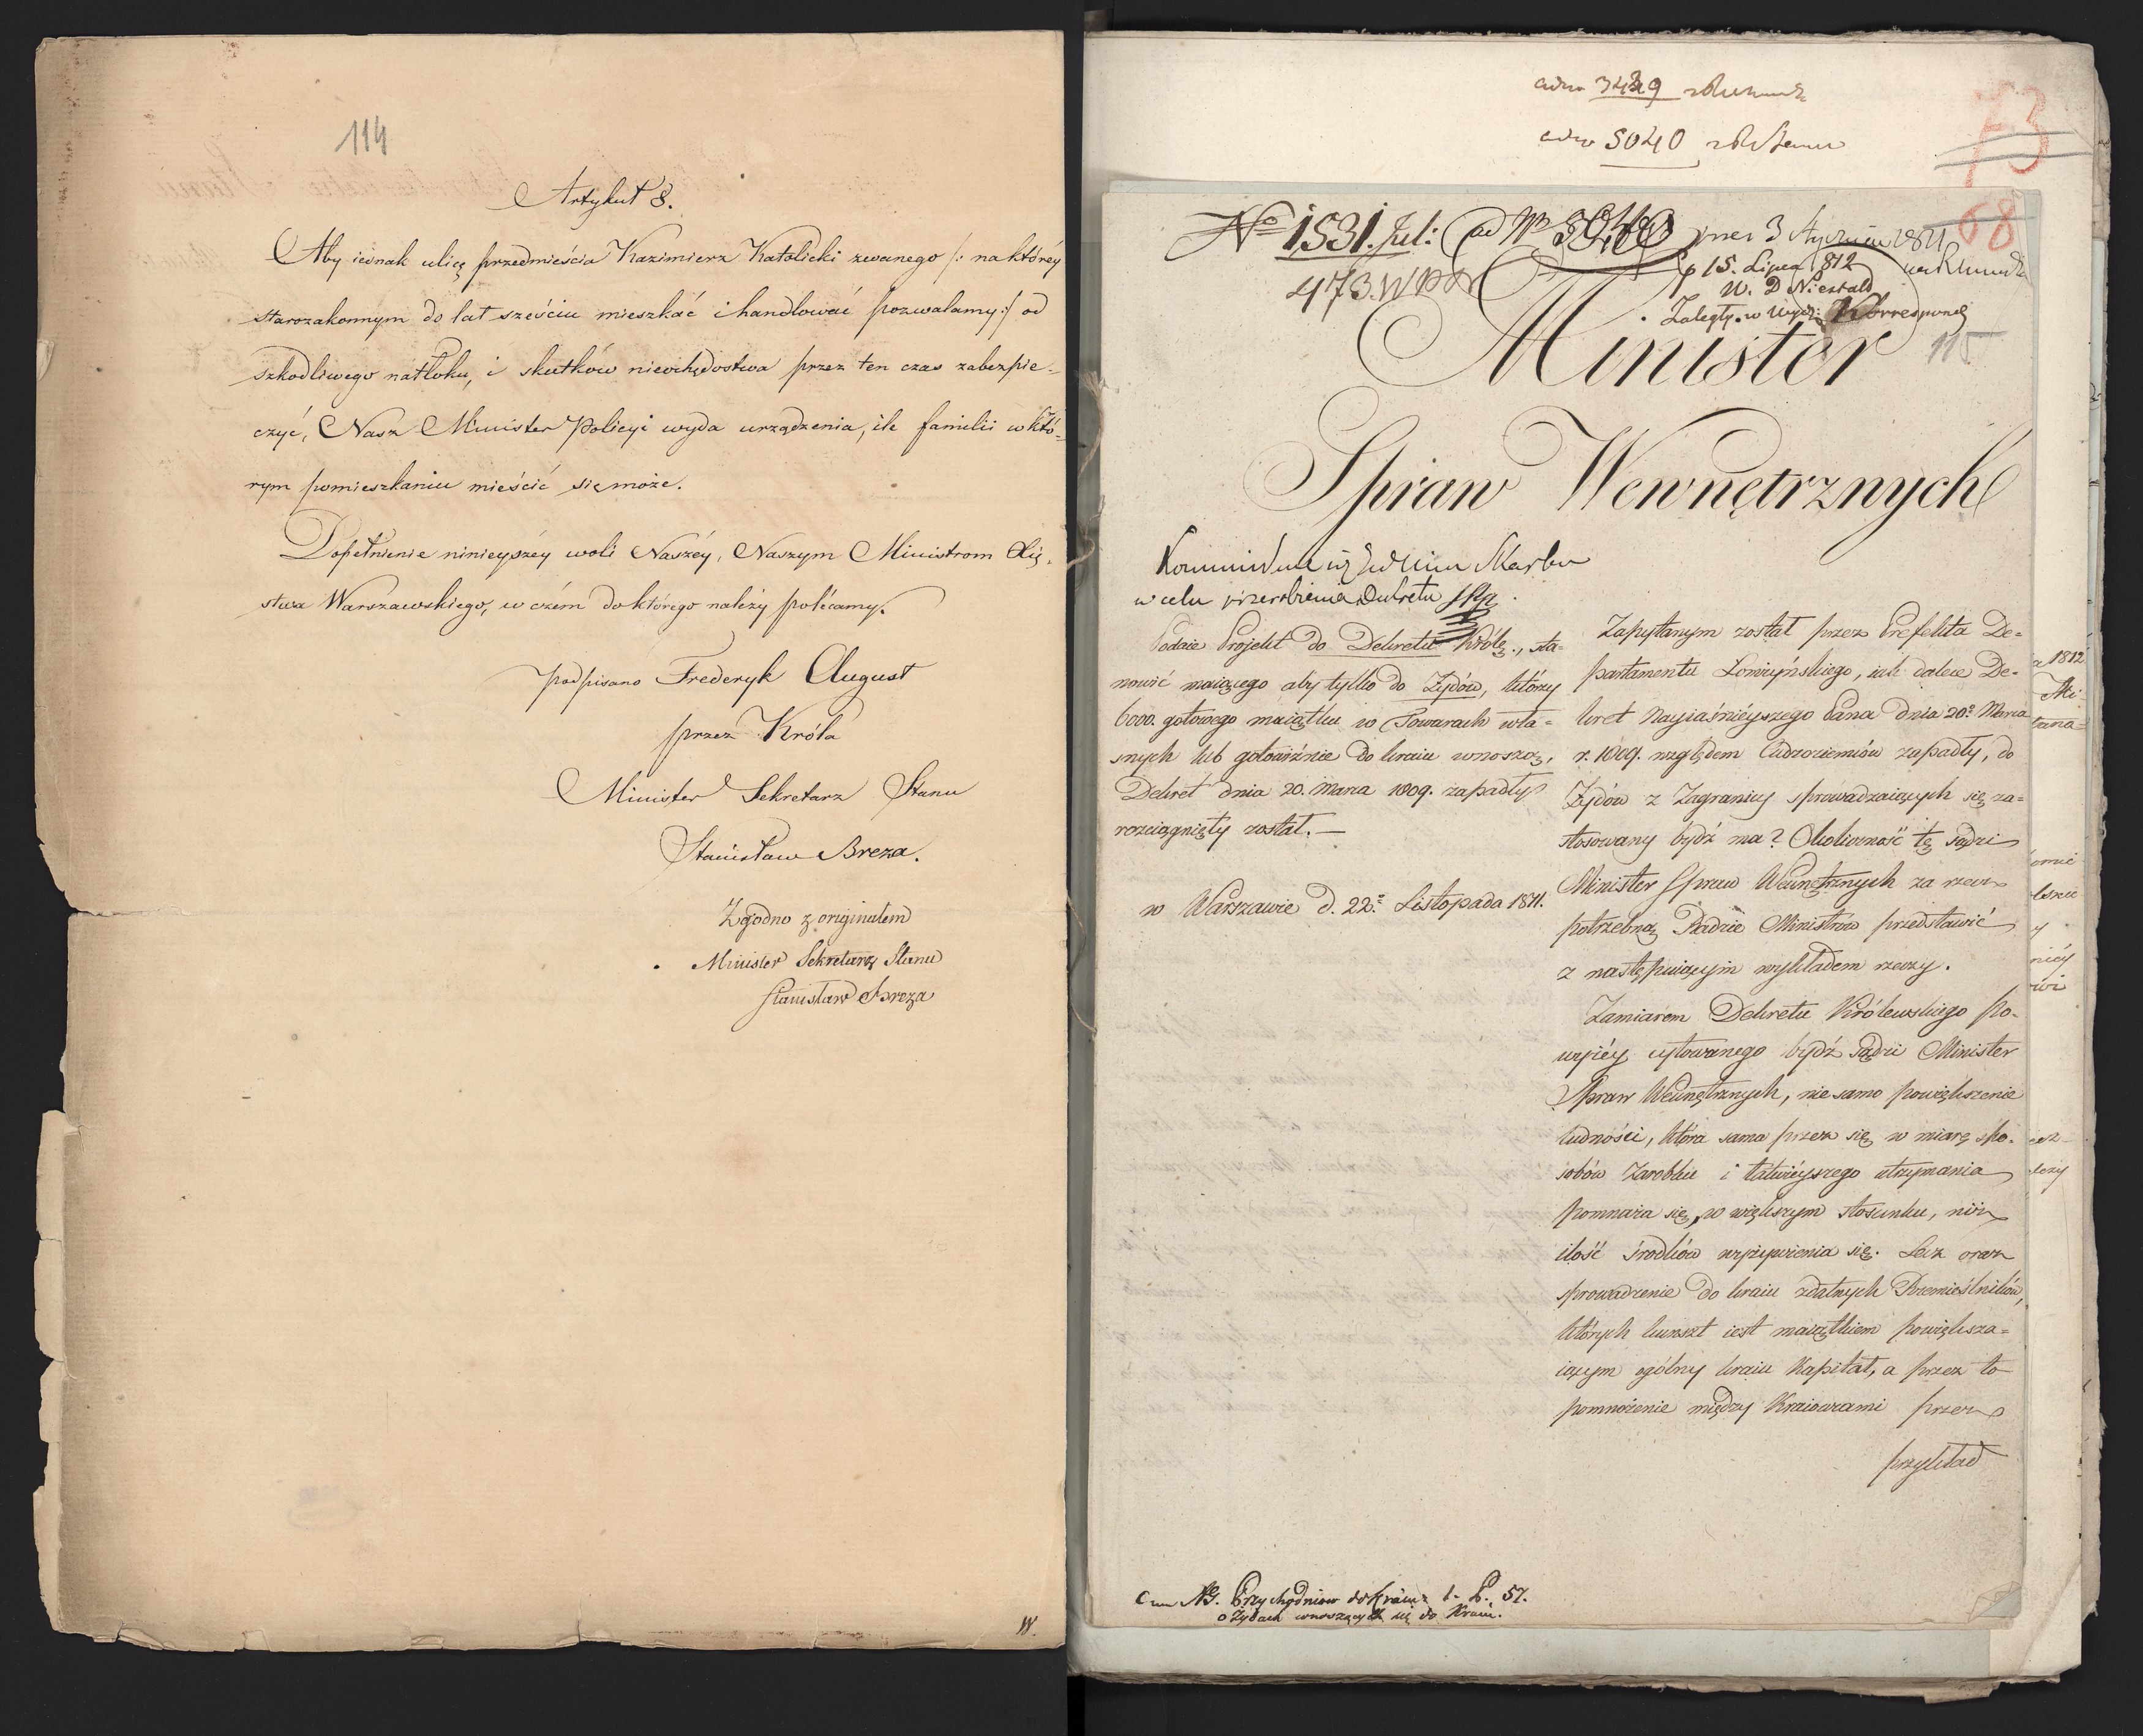 114
Artykuł 8.
Aby iednak ulicę przedmieścia Kazimierz Katolicki zwanego /: na którey
starozakonnym do lat sześciu mieszkać i handlować pozwalamy :/ od
szkodliwego natłoku, i skutków nieochędostwa przez ten czas zabezpie-
czyć, Nasz Minister Policyi wyda urządzenia, ile familii w któ-
rym pomieszkaniu mieścić się może.
Dopełnienie ninieyszéy woli Naszéy, Naszym Ministrom Xię-
stwa Warszawskiego, w czém do którego należy polécamy.
podpisano Frederyk August
przez Króla
Minister Sekretarz Stanu
Stanisław Breza.
Zgodno z originałem
Minister Sekretarz Stanu
Stanisław Breza
W.
3429
5040
73
68
No 1531. Jul: (ad No
473. W
15. Lipca 1812
W. D Niestald
Zaległ. w Wydz: Korrespond
115
Minister
Spraw Wewnętrznych
Skarbu
w celu przerobienia Dekretu
Podaie Projekt do Dekretu Królę., sta-
nowić maiącego aby tylko do Żydów, którzy
6000. gotowego maiątku w Towarach wła-
snych lub gotowiźnie do kraiu wnoszą,
Dekret dnia 20. Marca 1809. zapadły
rozciągnięty został. —
w Warszawie d. 22.o Listopada 1811.
Zapytanym został przez Prefekta De-
partamentu Łomżyńskiego, iak dalece De-
kret Nayiaśnieyszego Pana dnia 20o Marca
r. 1809. względem Cudzoziemców zapadły, do
Żydów z Zagranicy sprowadzaiących się za-
stosowany bydź ma? Okoliczność tę sądzi
Minister Spraw Wewnętrznych za rzecz
potrzebną Radzie Ministrów przedstawić
z następuiącym wykładem rzeczy.
Zamiarem Dekretu Królewskiego po-
wyżéy cytowanego bydź sądzi Minister
Spraw Wewnętrznych, nie samo powiększenie
ludności, która sama przez się w miarę spo-
sobów Zarobku i łatwieyszego utrzymania
pomnaża się, w większym stosunku, niż
ilość środków wyżywienia się. Lecz oraz
sprowadzenie do kraiu zdatnych Rzemieślników,
których kunszt iest maiątkiem powiększa-
iącym ogólny kraiu Kapitał, a przez to
pomnożenie między Kraiowcami przez
przykład
1812
Przychodniów do kraiu L. 57.
o Żydach wnoszących się do Kraiu.